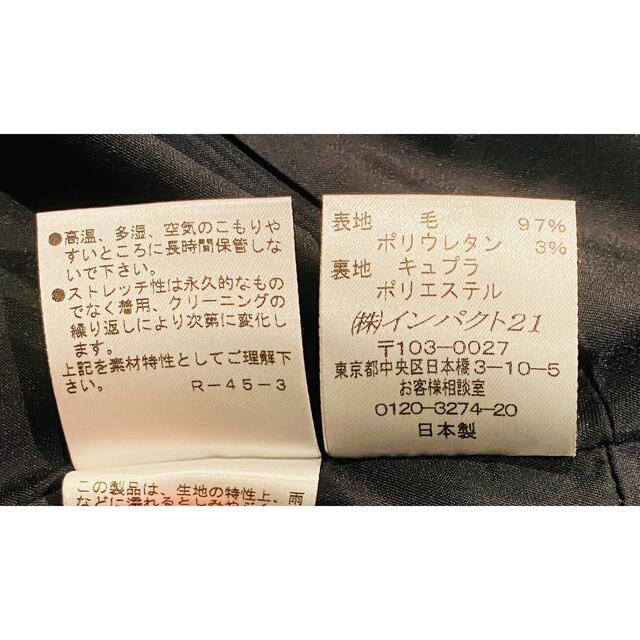 ●高温、多湿、空気のこもりや
すいところに長時間保管しな
いで下さい。
●ストレッチ性は永久的なもの
でなく着用、クリーニングの
繰り返しにより次第に変化し
ます。
上記を素材特性としてご理解下
さい。
R-45-3
この製品は、生地の特性上、雨
などに濡れるとしみや
表地 毛 97%
ポリウレタン 3%
裏地 キュプラ
ポリエステル
㈱インパクト21
〒103-0027
東京都中央区日本橋3-10-5
お客様相談室
0120-3274-20
日本製